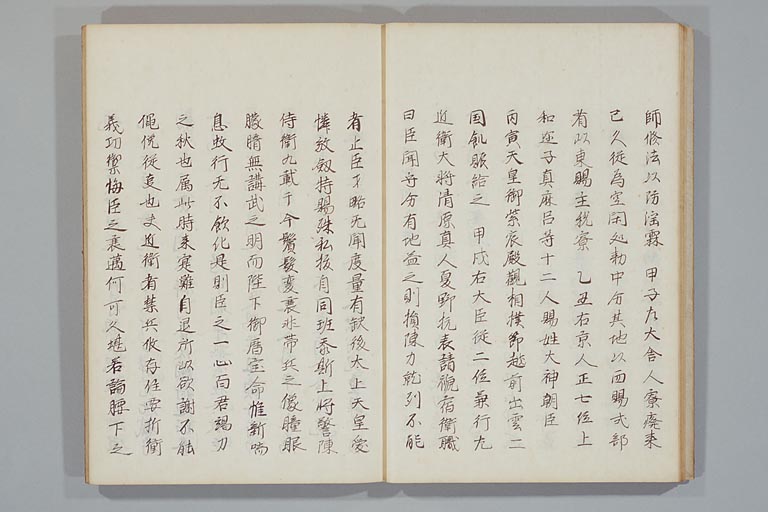 師修法以防淫霖 甲子左大舎人寮廃来
已久徒為空閑処勅中分其地以西賜式部
省以東賜主税寮 乙丑右京人正七位上
和迩子真麻呂等十二人賜姓大神朝臣
丙寅天皇御紫宸殿観相撲節越前出雲二
国飢賑給之 甲戌右大臣従二位兼行左
近衛大将清原真人夏野抗表請罷宿衛職
曰臣聞守分有地益之則損陳力就列不能
者止臣才略无聞度量有欽後太上天皇愛
憐放劔持賜殊私抜自同班忝斯上将警陳
侍衛九載于今鬢髪変衰非帯兵之儀瞳眼
朦暗無講武之明而陛下御暦宝命惟新喘
息蚑行无不飲化是則臣之一心百君竭力
之秋也属此時来寔難自退所以欲謝不能
俛俛従夐也夫近衛者禁兵攸存任要折衝
義功禦悔臣之衰邁何可久堪若論腰下之